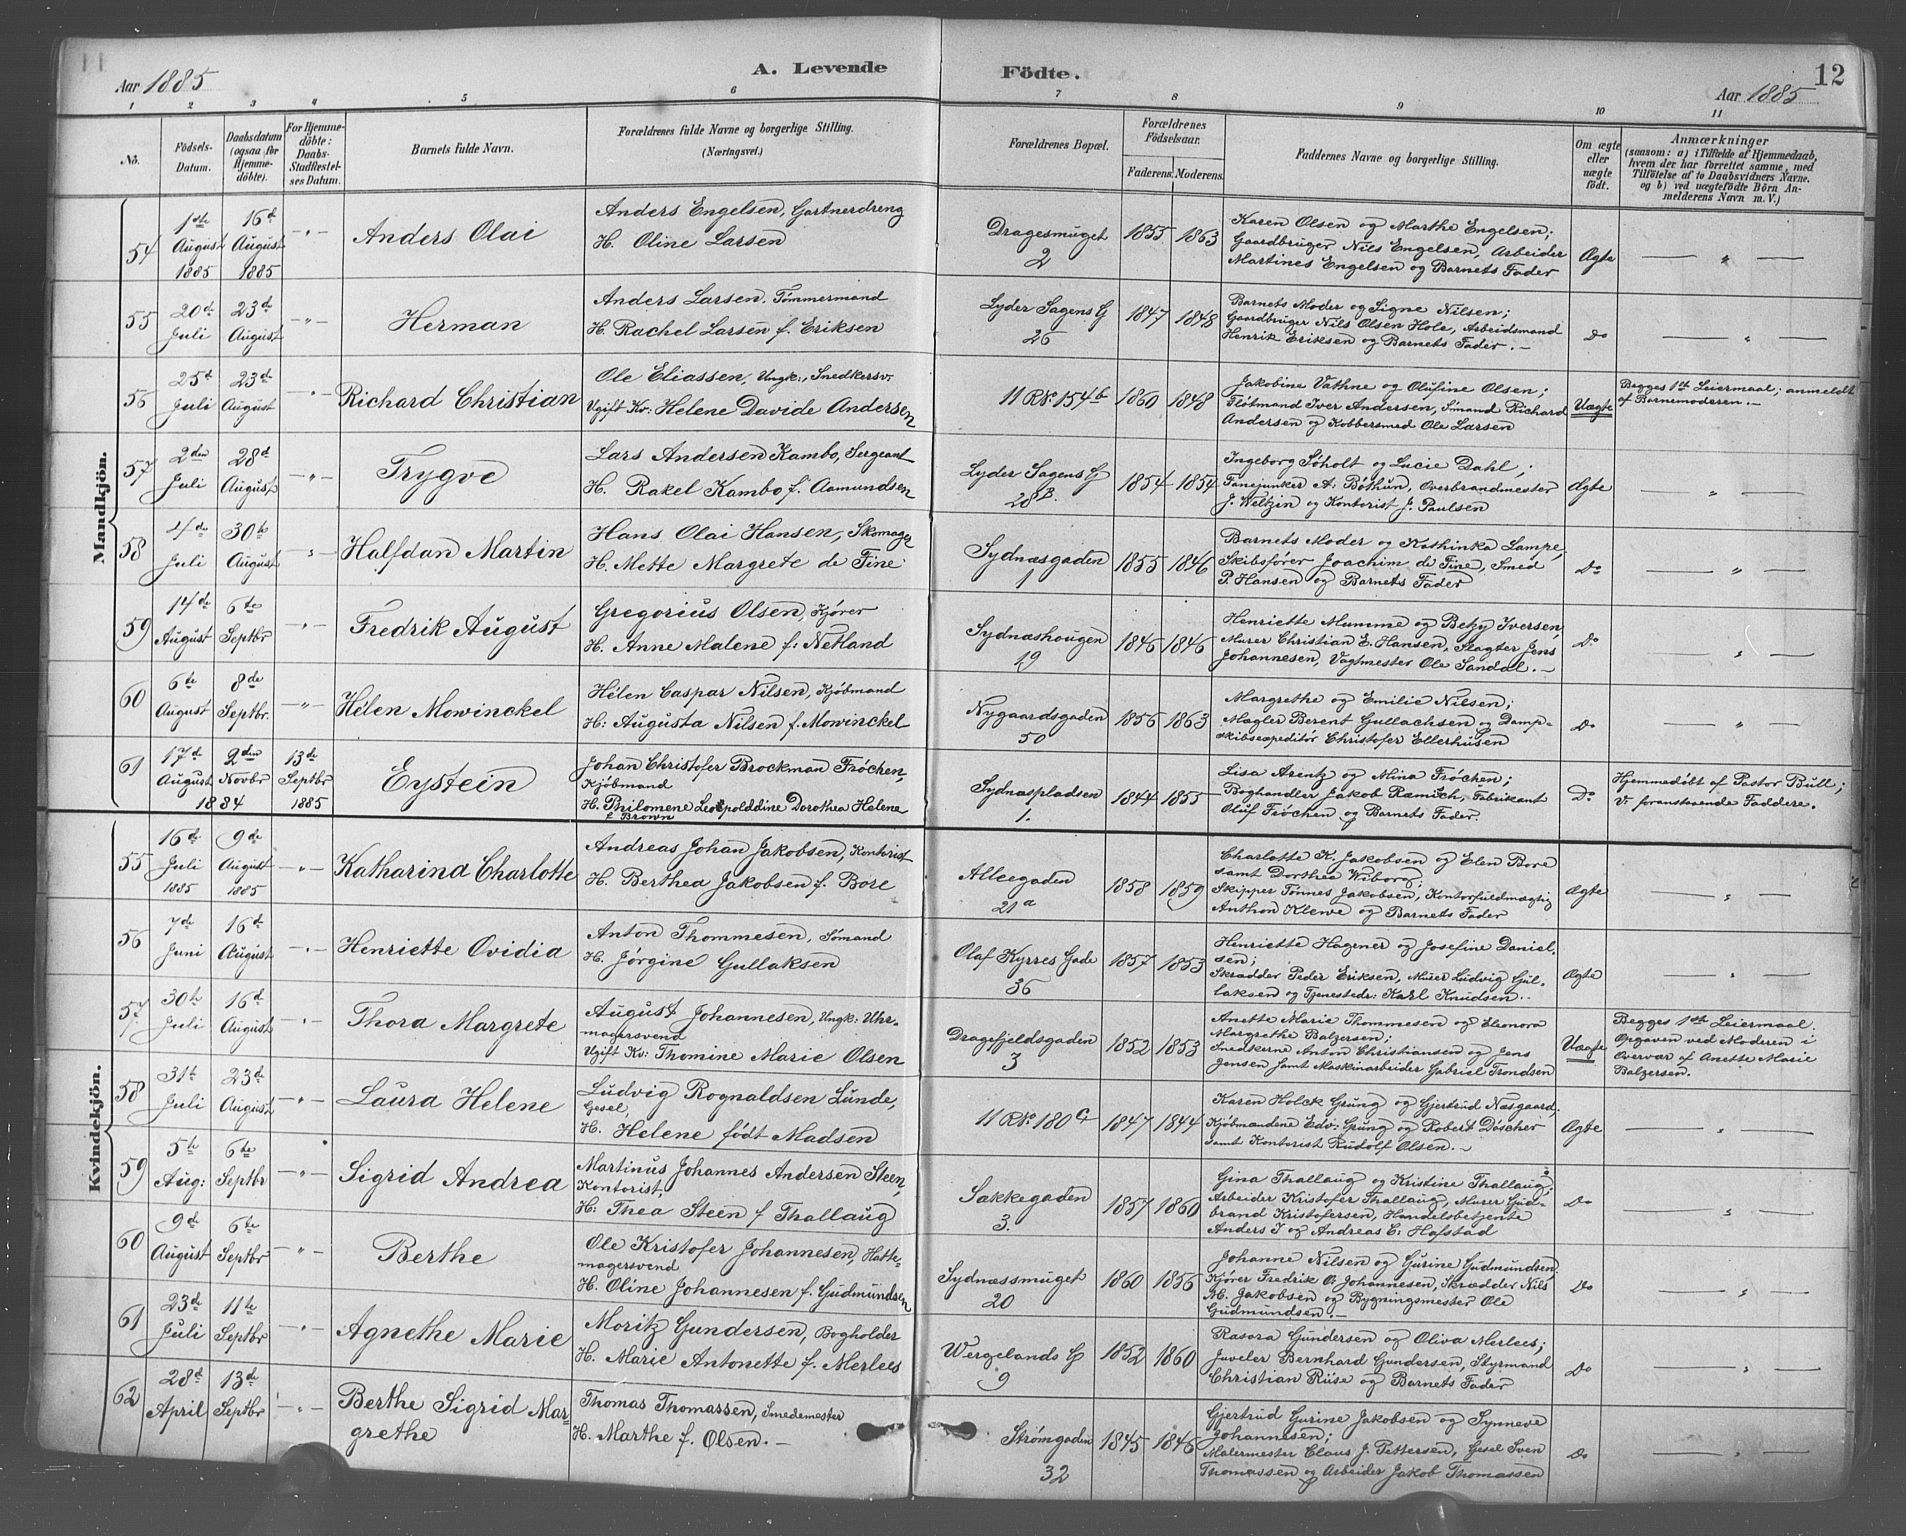 11
Aar 1885
A. Levende Födte.
Aar 1885
12
1 2 3 4 5 6 7 8 9 10 11
No.
Födsels-Datum.
Daabsdatum (ogsaa for Hjemmedöbte).
For Hjemmedöbte: Daabs-Stadfæstelses Datum.
Barnets fulde Navn.
Forældrenes fulde Navne og borgerlige Stilling.
(Næringsvei.)
Forældrenes Bopæl.
Forældrenes Födselsaar.
Faderens. Moderens.
Faddernes Navne og borgerlige Stilling.
Om ægte eller uægte födt.
Anmærkninger
(saasom: a) i Tilfælde af Hjemmedaab,
hvem der har forrettet samme, med
Tilföielse af to Daabsvidners Navne.
og b) ved uægtefödte Börn Anmelderens Navn m. V.)
Mandkjön.
54
1ste August 1885
16d August 1885
-"-
Anders Olai
Anders Engelsen, Gartnerdreng
H. Oline Larsen
Dragesmuget 2
1855 1863
Karen Olsen og Marthe Engelsen;
Gaardbruger Nils Engelsen, Arbeider
Martines Engelsen og Barnets Fader
Ægte
— " —
55
20d Juli
23d August
-"-
Herman
Anders Larsen. Tömmermand
H. Rachel Larsen f. Eriksen
Lyder Sagens G 26
1847 1848
Barnets Moder og Signe Nilsen;
Gaardbruger Nils Olsen Hole, Arbeidsmand
Henrik Eriksen og Barnets Fader. -
Do
— " —
56
25d Juli
23d August
-"-
Richard Christian
Ole Eliassen, Ungk:, Snedkersv:
Ugift Kv: Helene Davide Andersen
11 R No 154b
1860 1848
Jakobine Vathne og Olufine Olsen;
Flötmand Iver Andersen, Sömand Richard
Andersen og Kobbersmed Ole Larsen
Uægte
Begges 1te Leiermaal; anmeldt
af Barnemoderen. -
57
2den Juli
28d August
-"-
Trygve
Lars Andersen Kambo, Sergeant
H. Rakel Kambo f. Aamundsen
Lyder Sagens G 28B.
1854 1854
Ingeborg Söholt og Lucie Dahl;
Fanejunker A. Böthun, Overbrandmester
J. Weltzin og Kontorist J. Paulsen
Ægte
— " —
58
4de Juli
30te August
"
Halfdan Martin
Hans Olai Hansen, Skomager
H. Mette Margrete de Fine
Sydnæsgaden 1
1855 1846
Barnets Moder og Kathinka Lampe,
Skibsförer Joachim de Fine, Smed
P. Hansen og Barnets Fader
Do
— " —
59
14de August
6te Septbr
-"-
Fredrik August
Gregorius Olsen, Kjörer
H. Anne Malene f: Netland
Sydnæshougen 19
1846 1846
Henriette Mumme og Betzy Iversen,
Murer Christian E. Hansen, Slagter Jens
Johannesen, Vagtmester Ole Sandal. -
Do
— " —
60
6te August
8de Septbr.
-"-
Hélen Mowinckel
Hélen Caspar Nilsen, Kjöbmand
H: Augusta Nilsen f. Mowinckel
Nygaardsgaden 50
1856 1863
Margrethe og Emilie Nilsen;
Mægler Berent Gullachsen og Damp-
skibsexpeditör Christofer Ellerhusen
Do
— " —
61
17de August
2den Novbr
1884
13de Septbr 1885
Eystein
Johan Christofer Brockman Fröchen,
Kjöbmand
H. Philomene Leopolddine Dorothea Halena
f. Brown
Sydnæspladsen 1.
1844 1855
Lisa Arentz og Mina Fröchen;
Boghandler Jakob Ræmich, Fabrikant
Oluf Fröchen og Barnets Fader.
Do
Hjemmedöbt af Pastor Bull;
V: foranstaaende Faddere.
Kvindekjön.
55
16de Juli 1885
9de August 1885
-"-
Katharina Charlotte
Andreas Johan Jakobsen, Kontorist
H. Berthea Jakobsen f. Bore
Alleegaden 21a
1858 1859
Charlotte K. Jakobsen og Elen Bore
samt Dorthea Wiborg;
Skipper Tönnes Jakobsen, Kontorfuldmægtig
Anthon Klewe og Barnets Fader
Ægte
— " —
56
7de Juni
16d August
-"-
Henriette Ovidia
Anton Thommesen, Sömand
H. Jörgine Gullaksen
Olaf Kyrres Gade 36
1857 1853
Henriette Hagener og Josefine Daniel-
sen;
Skrædder Peder Eriksen, Murer Ludvig Gul-
laksen og Tjenestedr: Karl Knudsen. -
Ægte
— " —
57
30te Juli
16d August
-"-
Thora Margrete
August Johannesen, Ungk: Uhr-
magersvend
Ugift Kv: Thomine Marie Olsen
Dragefjeldsgaden 3
1852 1853
Anette Marie Thommesen og Eleonora
Margrethe Balzersen;
Snedkerne Anton Christiansen og Jens
Jensen samt Maskinarbeider Gabriel Trondsen
Uægte
Begges 1ste Leiermaal.
Opgaven ved Moderen i
Overvær af Anette Marie
Balzersen.
58
31t Juli
23de August
-"-
Laura Helene
Ludvig Rognaldsen Lunde,
Gesel,
H. Helene födt Madsen
11 R No 180a
1847 1844
Karen Holck Grung og Gjertrud Næsgaard,
Kjöbmændene Edv: Grung og Robert Döscher
samt Kontorist Rudolf Olsen. -
Ægte
— " —
59
5te Aug:
6te Septbr
-"-
Sigrid Andrea
Martinus Johannes Andersen Steen,
Kontorist,
H: Thea Steen f Thallaug
Sækkegaden 3.
1857 1860
Gina Thallaug og Kristine Thallaug;
Arbeider Kristofer Thallaug, Murer Gud-
brand Kristofersen, Handelsbetjente
Anders J og Andreas E. Hofstad
Do
— " —
60
9de August
6te Septbr
-"-
Berthe
Ole Kristofer Johannesen, Hatte-
magersvend
H. Oline Johannesen f. Gudmundsen
Sydnæssmuget 20
1860 1856
Johanne Nilsen og Gurine Gudmundsen,
Kjörer Fredrik O. Johannesen, Skrædder Nils
M. Jakobsen og Bygningsmester Ole
Gudmundsen. -
Do
— " —
61
23de Juli
11te Septbr
-"-
Agnethe Marie
Moritz Gundersen, Bogholder
H. Marie Antonette f. Merlees
Wergelands G 9
1852 1860
Rasora Gundersen og Oliva Merlees;
Juveler Bernhard Gundersen, Styrmand
Christian Riise og Barnets Fader
Do
— " —
62
28d April
13de Septbr
-"-
Berthe Sigrid Mar-
grethe
Thomas Thomassen, Smedemester
H. Marthe f. Olsen. -
Strömgaden 32
1845 1846
Gjertrud Gurine Jakobsen og Synneve
Johannesen;
Malermester Claus J. Pettersen, Gesel Sven
Thomassen og Arbeider Jakob Thomassen
Do
— " —